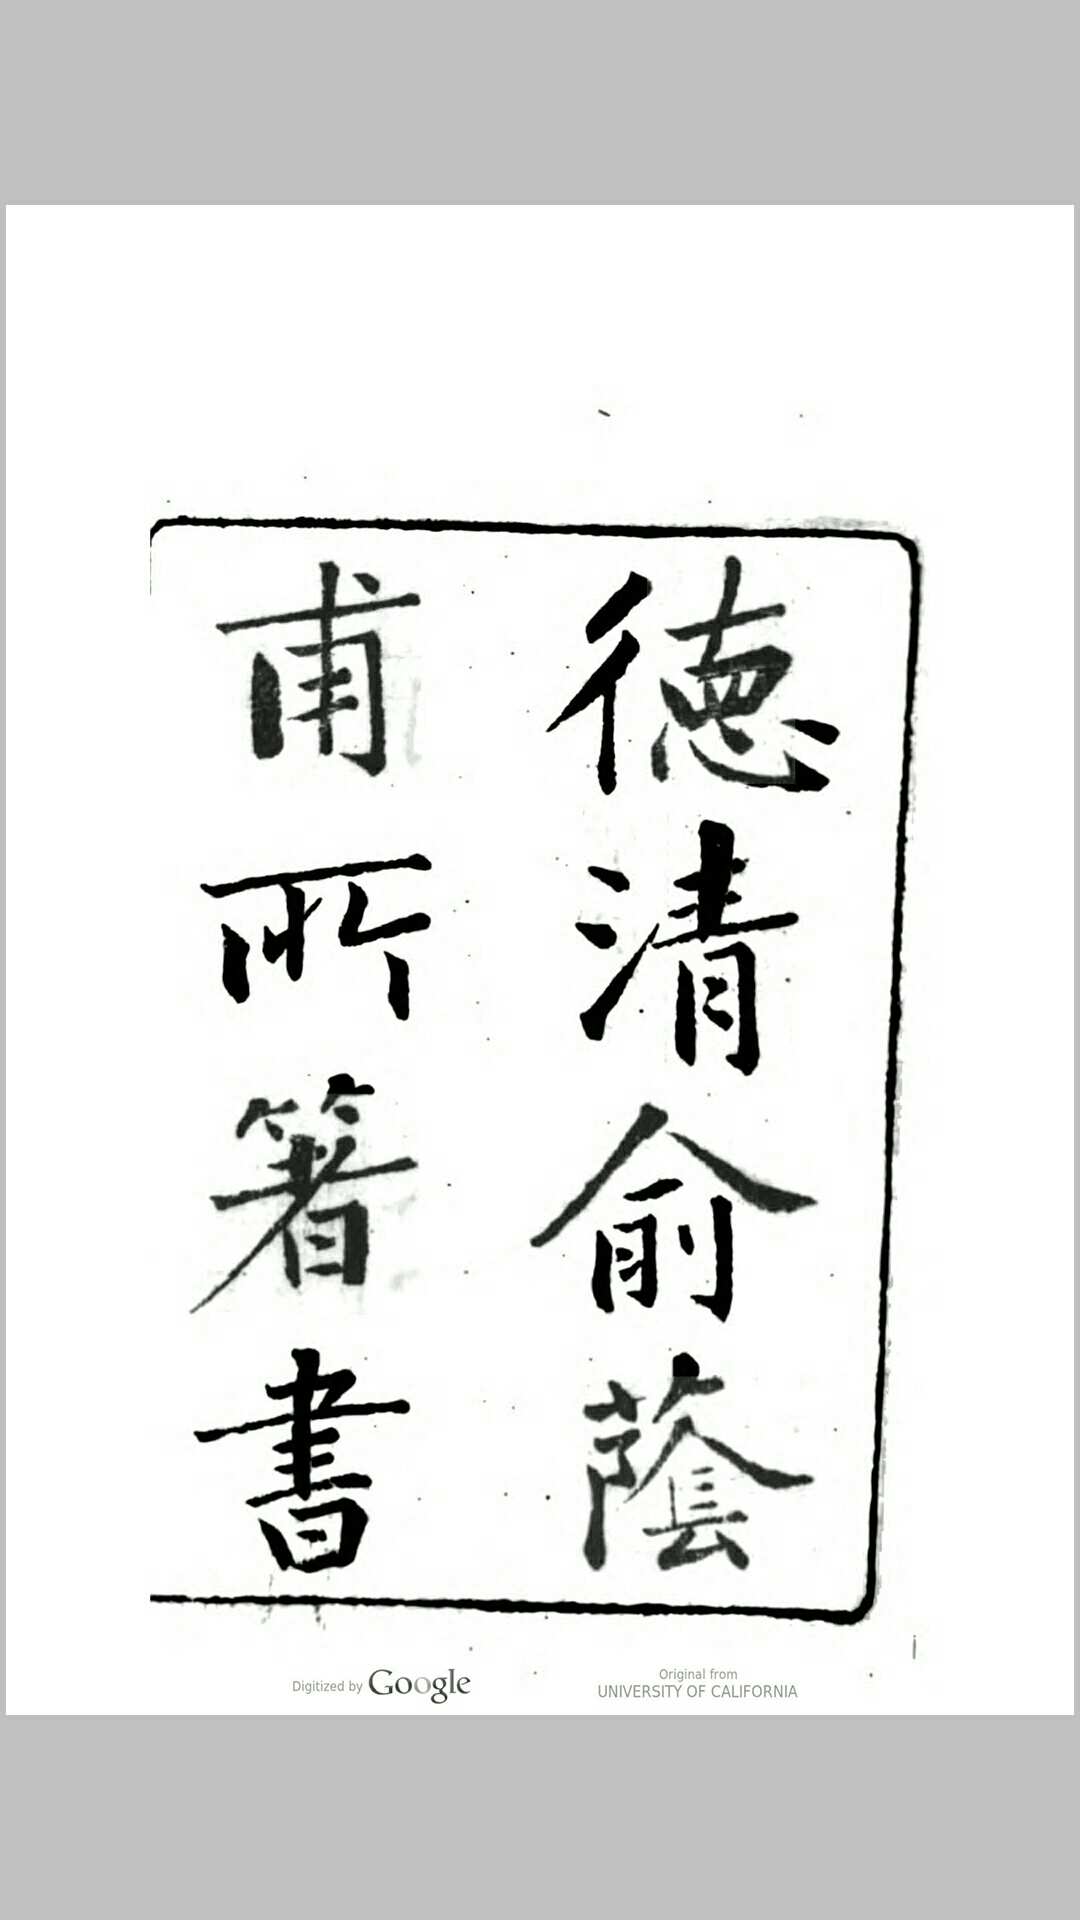 德清俞蔭
甫所箸書
Digitized by Google
Original from
UNIVERSITY OF CALIFORNIA